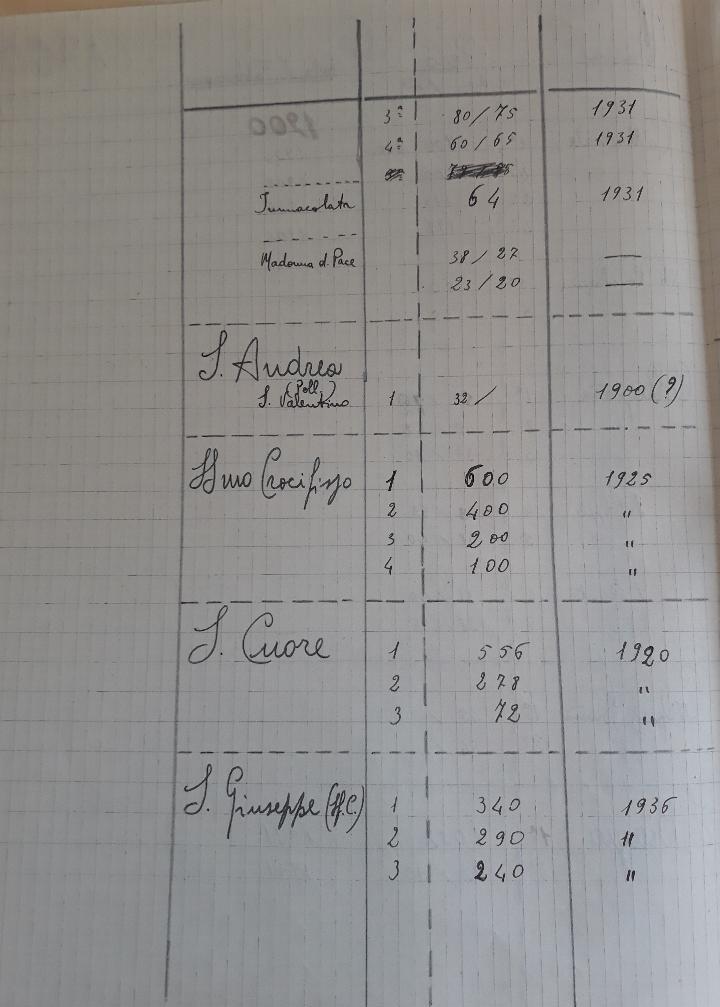 3ª 80/75 1931
4ª 60/65 1931
Immacolata 64 1931
Madonna d. Pace 38/27 —
23/20 —
S. Andrea
(Poll.)
S. Valentino 1 32/ 1900(?)
SSmo Crocifisso 1 600 1925
2 400 "
3 200 "
4 100 "
S. Cuore 1 556 1920
2 278 "
3 72 "
S. Giuseppe (SS.C.) 1 340 1936
2 290 "
3 240 "